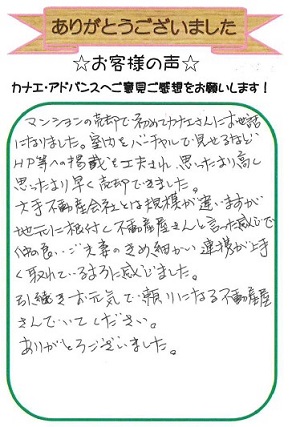 ありがとうございました
☆お客様の声☆
カナエ・アドバンスへご意見ご感想をお願いします！
マンションの売却で初めてカナエさんにお世話
になりました。室内をバーチャルで見せるなど
HP等への掲載を工夫され、思ったより高く
思ったより早く売却できました。
大手不動産会社とは規模が違いますが
地元に根付く不動産屋さんと言った感じで
仲の良いご夫妻のきめ細かい連携が上手
く取れているように感じました。
引続きお元気で頼りになる不動産屋
さんでいてください。
ありがとうございました。